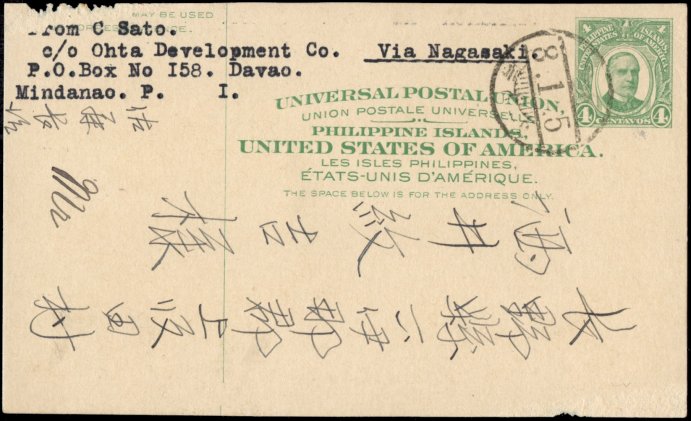 MAY BE USED
From C Sato.
c/o Ohta Development Co. Via Nagasaki.
P.O.Box No I58. Davao.
Mindanao. P. I.
4 4
PHILIPPINE ISLANDS
UNITED STATES OF AMERICA
4 CENTAVOS 4
8.1.5
UNIVERSAL POSTAL UNION.
UNION POSTALE UNIVERSELLE
PHILIPPINE ISLANDS,
UNITED STATES OF AMERICA.
LES ISLES PHILIPPINES,
ÉTATS-UNIS D'AMÉRIQUE.
THE SPACE BELOW IS FOR THE ADDRESS ONLY.
長野縣下伊那郡上飯田村
酒井敏吉様
Mr